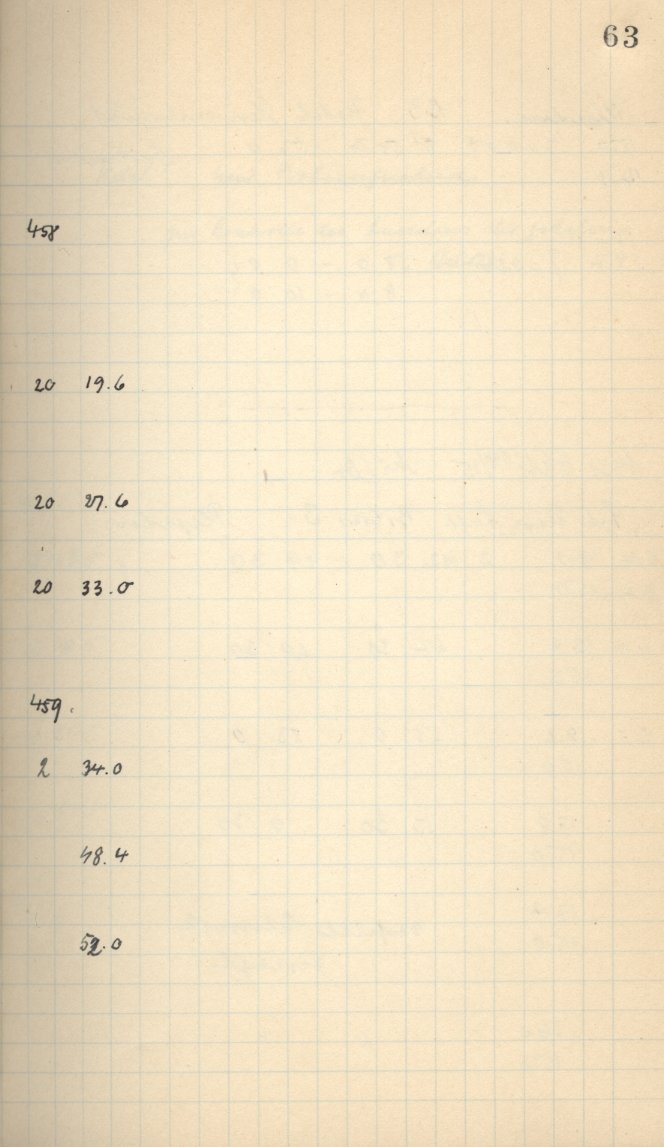 63
458
20 19.6
20 27.6
20 33.0
459.
2 34.0
48.4
52.0